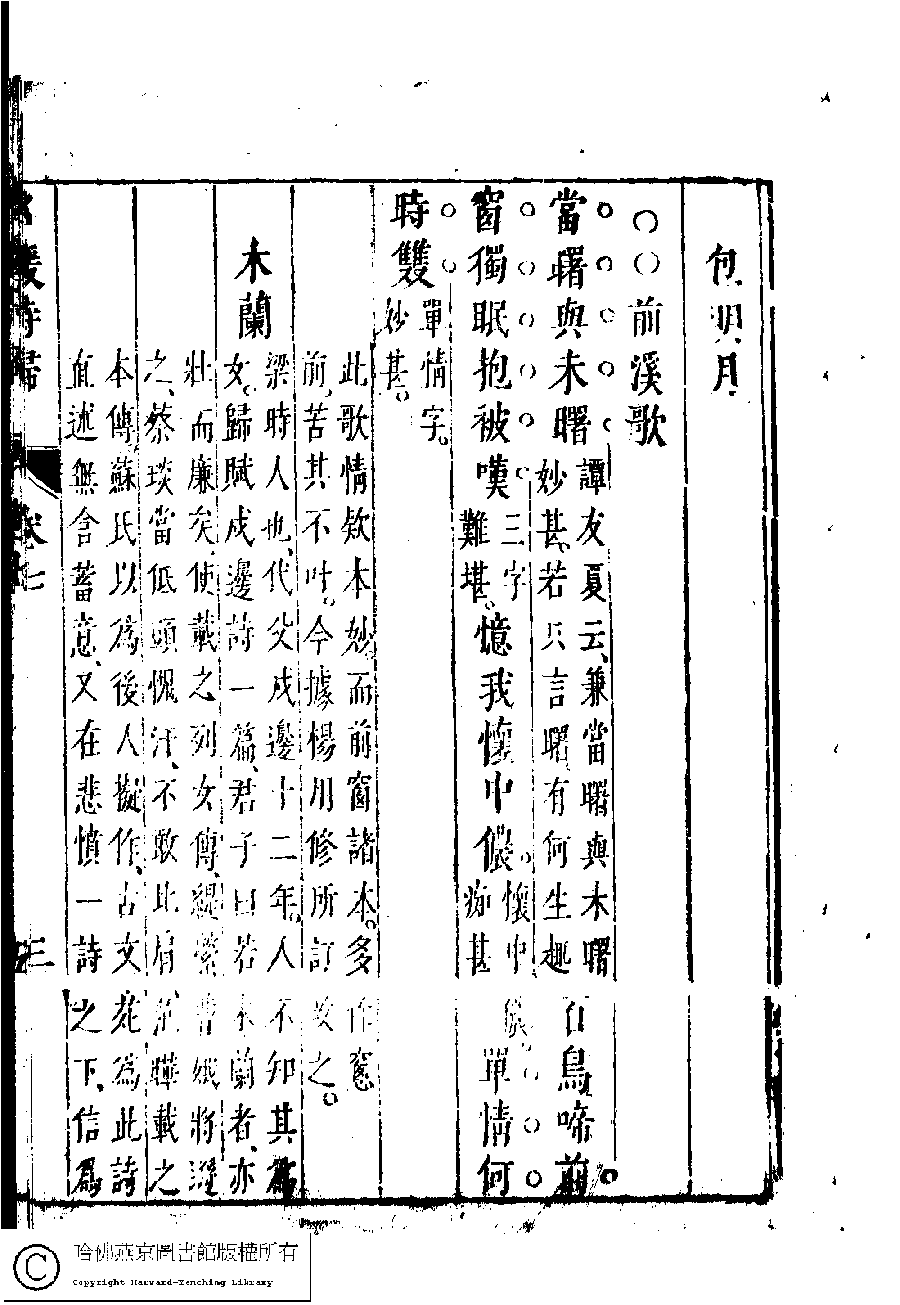 包明月
○○前溪歌
當曙與未曙譚友夏云、兼當曙與未曙妙甚。若只言曙、有何生趣百鳥啼前
窗獨眠抱被嘆三字難堪。憶我懷中儂懷中儂痴甚單情何
時雙單情字。妙甚。
此歌情欵本妙、而前窗諸本。多作窓
前、苦其不叶。今據楊用修所訂改之。
木蘭
梁時人也、代父戍邊十二年。人不知其爲
女。歸賦戍邊詩一篇、君子曰若木蘭者、亦
壯而廉矣、使載之列女傳、緹縈曹娥將遜
之、蔡琰當低頭愧汗、不敢比肩、范曄載之
本傳、蘇氏以爲後人擬作、古文苑爲此詩
直述無含蓄意、又在悲憤一詩之下、信爲
名媛詩歸 卷七 三
哈佛燕京圖書館版權所有
Copyright Harvard-Yenching Library